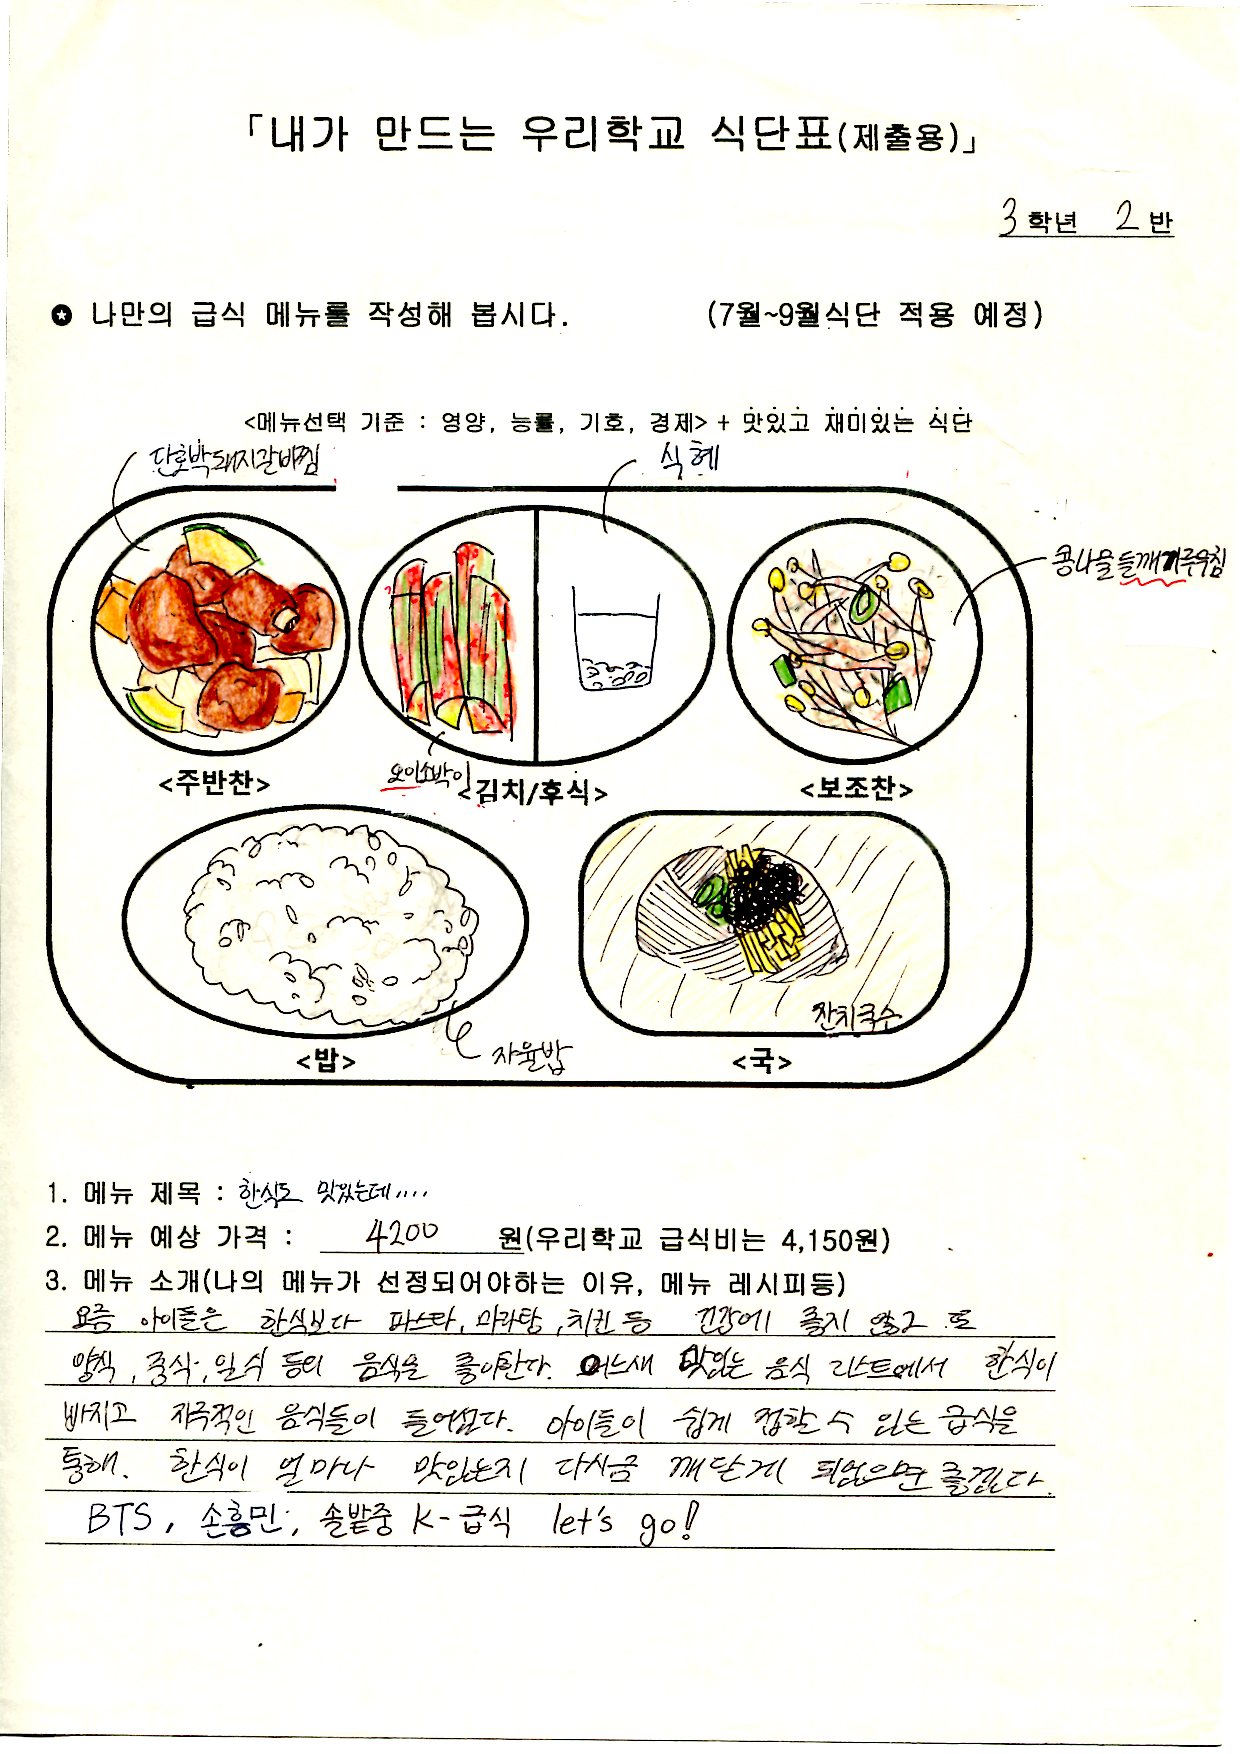 「내가 만드는 우리학교 식단표(제출용)」
3학년 2반
✪ 나만의 급식 메뉴를 작성해 봅시다. (7월~9월식단 적용 예정)
<메뉴선택 기준 : 영양, 능률, 기호, 경제> + 맛있고 재미있는 식단
단호박돼지갈비찜
식혜
콩나물들깨가루무침
<주반찬>
오이소박이
<김치/후식>
<보조찬>
잔치국수
자율밥
<밥>
<국>
1. 메뉴 제목 : 한식도 맛있는데....
2. 메뉴 예상 가격 : 4200 원(우리학교 급식비는 4,150원)
3. 메뉴 소개(나의 메뉴가 선정되어야하는 이유, 메뉴 레시피등)
요즘 아이들은 한식보다 파스타, 마라탕, 치킨 등 건강에 좋지 않고 또
양식, 중식, 일식 등의 음식을 좋아한다. 어느새 맛있는 음식 리스트에서 한식이
빠지고 자극적인 음식들이 들어섰다. 아이들이 쉽게 접할 수 있는 급식을
통해. 한식이 얼마나 맛있는지 다시금 깨닫게 되었으면 좋겠다.
BTS, 손흥민, 솔밭중 K-급식 let's go!